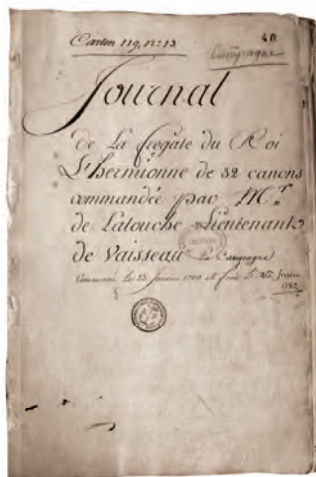 Carton 119, n.º 13
40
Campagne
Journal
de La fregate du Roi
L'hermionne de 32 canons
commandée par Mr.
de Latouche Lieutenant
de Vaisseau La Campagne
Commencée Le 23 Janvier 1780 et finie Le
1782